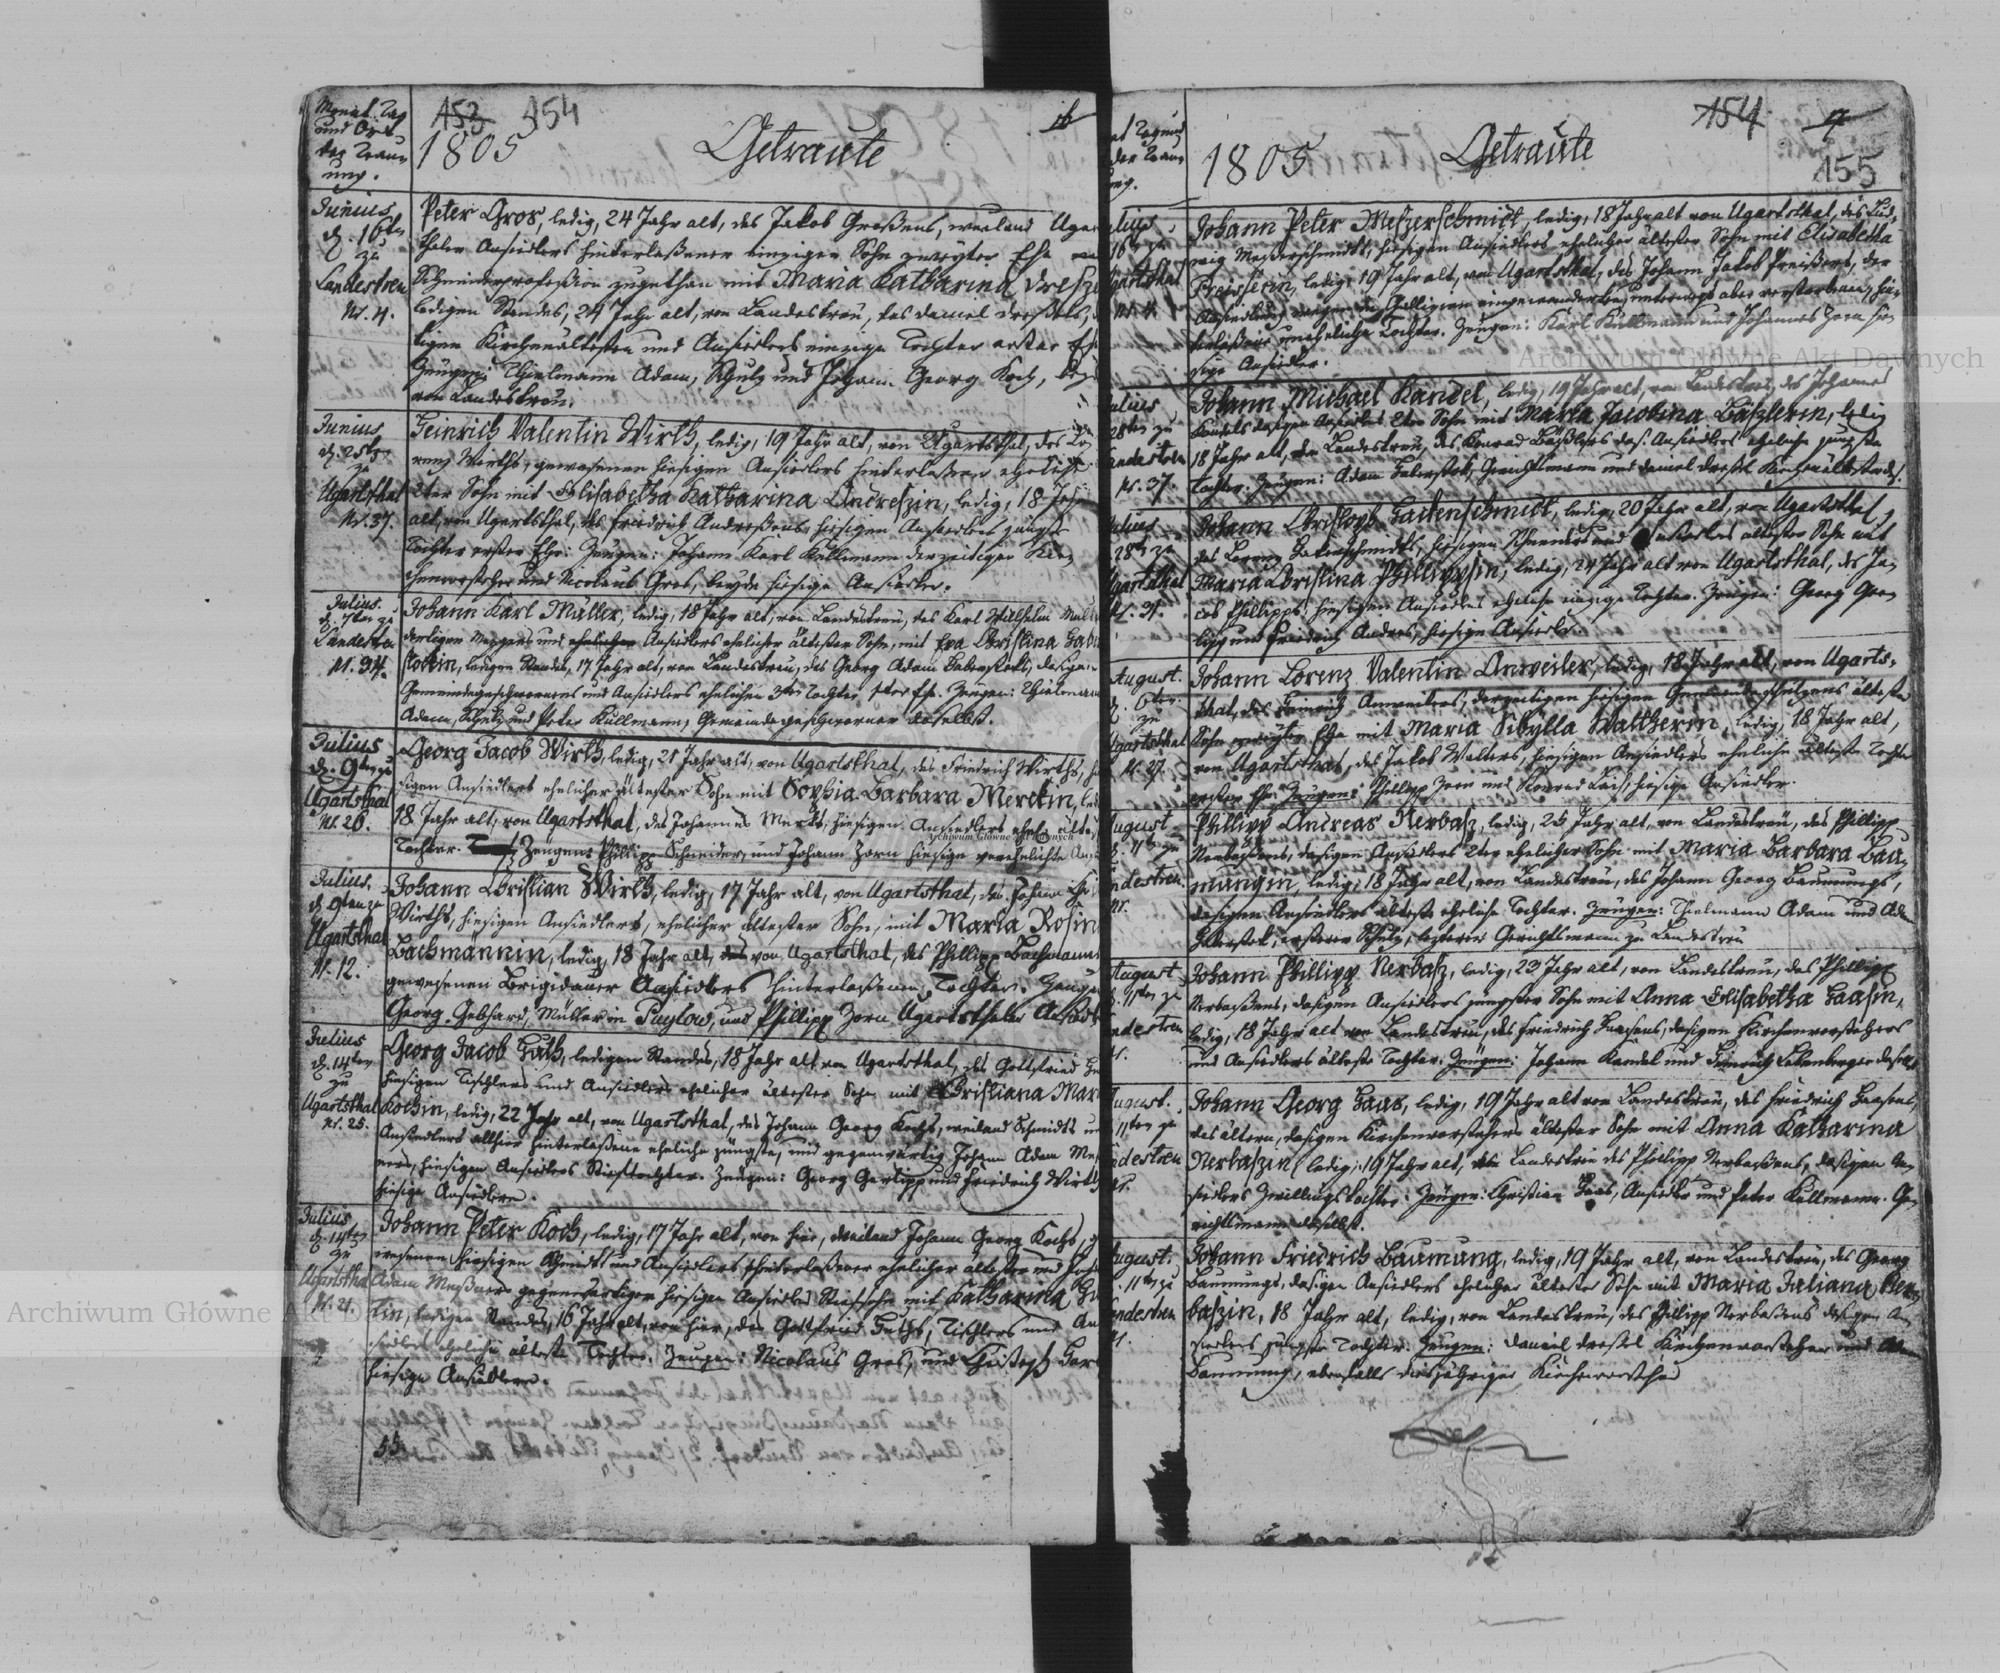 Monat. Tag
und Ort
der Trau-
ung.
153 154
1805
Getraute
Junius
d. 16ten
zu
Landestreu
Nr. 4.
Peter Gros, ledig, 24 Jahr alt, des Jakob Großens, weiland Ugar
thaler Ansiedlers hinterlaßener einziger Sohn zweyter Ehe
Schneiderprofession zugethan mit Maria Katharina Dresze
ledigen Standes, 24 Jahr alt, von Landestreu, des Daniel Dreßels,
tigen Kirchenältesten und Ansiedlers einzige Tochter erster Ehe
Zeugen: Thielmann Adam, Schulz und Johann Georg Koch, bey
von Landestreu.
Junius
d. 25ten
zu
Ugartsthal
Nr. 37.
Heinrich Valentin Wirth, ledig, 19 Jahr alt, von Ugartsthal, des Lo
renz Wirths, gewesenen hiesigen Ansiedlers hinterlaßener ehelicher
2ter Sohn mit Elisabetha Katharina Andreszin, ledig, 18 Jahr
alt, von Ugartsthal, des Friedrich Andreßens hiesigen Ansiedlers jüngste
Tochter erster Ehe: Zeugen: Johann Karl Kullmann derzeitiger Kir-
chenvorsteher und Nicolaus Gros, beyde hiesige Ansiedler.
Julius.
d. 7ten zu
Landestreu
N. 34.
Johann Karl Müller, ledig, 18 Jahr alt, von Landestreu, des Karl Wilhelm Mül
dortigen Metzgers und Ansiedlers ehelicher ältester Sohn, mit Eva Christina Haber
stockin, ledigen Standes, 17 Jahr alt, von Landestreu, des Georg Adam Haberstocks, dasigen
Gemeindegeschwornens und Ansiedlers ehelichen 3ten Tochter, 1ter Ehe. Zeugen: Thielmann
Adam, Schulz und Peter Kullmann, Gemeindegeschworner daselbst.
Julius
d. 9ten zu
Ugartsthal
Nr. 26.
Georg Jacob Wirth, ledig, 21 Jahr alt, von Ugartsthal, des Friedrich Wirths, hi
sigen Ansiedlers ehelicher ältester Sohn mit Sophia Barbara Merckin, led
18 Jahr alt, von Ugartsthal, des Johannes Mercks, hiesigen Ansiedlers ehel. älte
Tochter. Zeugen: Phillipp Schneider, und Johann Zorn hiesige verehelichte Ans
Julius.
d. 9ten zu
Ugartsthal
N. 12.
Johann Christian Wirth, ledig, 17 Jahr alt, von Ugartsthal, des Johann
Wirths, hiesigen Ansiedlers, ehelicher ältester Sohn, mit Maria Rosin
Bachmannin, ledig, 18 Jahr alt, von Ugartsthal, des Phillipp Bachmanns
gewesenen Brigidauer Ansiedlers hinterlaßenen Tochter. Zeugen
Georg Gebhard, Müller in Paylow, und Phillipp Zorn Ugartsthaler Ansiedl
Julius
d. 14ten
zu
Ugartsthal
Nr. 25.
Georg Jacob Huth, ledigen Standes, 18 Jahr alt von Ugartsthal, des Gottfried Hu
hiesigen Tischlers und Ansiedlers ehelicher ältester Sohn mit Christiana Mar
Kochin, ledig, 22 Jahr alt, von Ugartsthal, des Johann Georg Kochs, weiland Schmidts un
Ansiedlers allhier hinterlaßene eheliche jüngste, und gegenwärtig Johann Adam
hiesigen Ansiedlers Stieftochter. Zeugen: Georg Gerlipp und Friedrich Wirth
hiesige Ansiedlern.
Julius
d. 14ten
zu
Ugartsthal
N. 21.
Johann Peter Koch, ledig, 17 Jahr alt, von hier, weiland Johann Georg Kochs, g
wesenen hiesigen Schmidts und Ansiedlers hinterlaßener ehelicher ältester und Joh
Adam gegenwärtiger hiesigen Ansiedlers Stiefsohn mit Katharina Hu
tin, ledigen Standes, 16 Jahr alt, von hier, des Gottfried Huths, Tischlers und An
siedlers eheliche älteste Tochter. Zeugen: Nicolaus Gros, und Christoph
hiesige Ansiedlern.
53
1805
Getraute
154
155
Johann Peter Meszerschmidt, ledig, 18 Jahr alt von Ugartsthal, des Lud-
wig Meßerschmidts, hiesigen Ansiedlers ehelicher ältester Sohn mit Elisabetha
Preiszerin, ledig, 19 Jahr alt, von Ugartsthal, des Johann Jakob Preißers, der
Tochter. Zeugen: Karl Kullmann und Johannes Zorn hie-
sige Ansiedler.
Julius
28ten zu
Landestreu
Nr. 37.
Johann Michael Kandel, ledig, 19 Jahr alt, von Landestreu, des Johannes
Kandels dasigen Ansiedlers 2ter Sohn mit Maria Jacobina Bäszlerin, ledig
18 Jahr alt, von Landestreu, des Konrad Bäßlers das. Ansiedlers eheliche jüngste
Tochter. Zeugen: Adam Haberstock, Gerichtsmann und Daniel Dreßel Kirchenältester das.
Julius
28ten zu
Ugartsthal
N. 31.
Johann Christoph Gartenschmidt, ledig, 20 Jahr alt, von Ugartsthal,
des Lorenz Gartenschmidts, hiesigen Schneiders und Ansiedlers ältester Sohn mit
Maria Christina Phillippsin, ledig, 24 Jahr alt von Ugartsthal, des Ja-
cob Phillipps, hiesigen Ansiedlers eheliche einzige Tochter. Zeugen: Georg Ger-
lipp und Friedrich Andres, hiesige Ansiedler.
August.
d. 6ten
zu
Ugartsthal
N. 27.
Johann Lorenz Valentin Anweiler, ledig, 18 Jahr alt, von Ugarts-
thal, des Heinrich Anweilers, derzeitigen hiesigen Gemeindeschützens ältester
Sohn zweyter Ehe mit Maria Sibylla Waltherin, ledig, 18 Jahr alt,
von Ugartsthal, des Jakob Walters, hiesigen Ansiedlers eheliche älteste Tochter
erster Ehe. Zeugen: Phillipp Zorn und Konrad hiesige Ansiedler.
August
11ten zu
Landestreu.
Nr.
Phillipp Andreas Nerbasz, ledig, 25 Jahr alt, von Landestreu, des Phillipp
Nerbaßens, dasigen Ansiedlers 2ter ehelicher Sohn mit Maria Barbara Bau-
mungin, ledig, 18 Jahr alt, von Landestreu, des Johann Georg Baumungs,
dasigen Ansiedlers älteste eheliche Tochter. Zeugen: Thielmann Adam und Adam
Haberstock, ersterer Schulz, lezterer Gerichtsmann zu Landestreu
August
11ten zu
Landestreu
Johann Phillipp Nerbasz, ledig, 23 Jahr alt, von Landestreu, des Phillipp
Nerbaßens, dasigen Ansiedlers jüngster Sohn mit Anna Elisabetha Haasin,
ledig, 18 Jahr alt von Landestreu, des Friedrich Haasens, dasigen Kirchenvorstehers
und Ansiedlers älteste Tochter. Zeugen: Johann Kandel und Heinrich
August.
11ten zu
Landestreu
Johann Georg Haas, ledig, 19 Jahr alt von Landestreu, des Friedrich Haasens,
des ältern, dasigen Kirchenvorstehers ältester Sohn mit Anna Katharina
Nerbaszin, ledig, 19 Jahr alt, von Landestreu des Phillipp Nerbaßens, dasigen An-
siedlers Zwillingstochter. Zeugen: Christian Haas, Ansiedler und Peter Kullmann. Ge-
richtsmann daselbst.
August.
11ten zu
Landestreu
Johann Friedrich Baumung, ledig, 19 Jahr alt, von Landestreu, des Georg
Baumungs, dasigen Ansiedlers ehelicher ältester Sohn mit Maria Juliana Ner-
baszin, 18 Jahr alt, ledig, von Landestreu, des Phillipp Nerbaßens dasigen An-
siedlers jüngste Tochter. Zeugen: Daniel Dreßel Kirchenvorsteher und Adam
Baumung, ebenfalls diesjähriger Kirchenvorsteher
Archiwum Główne Akt Dawnych
Archiwum Główne Akt Dawnych
Archiwum Główne Akt Dawnych